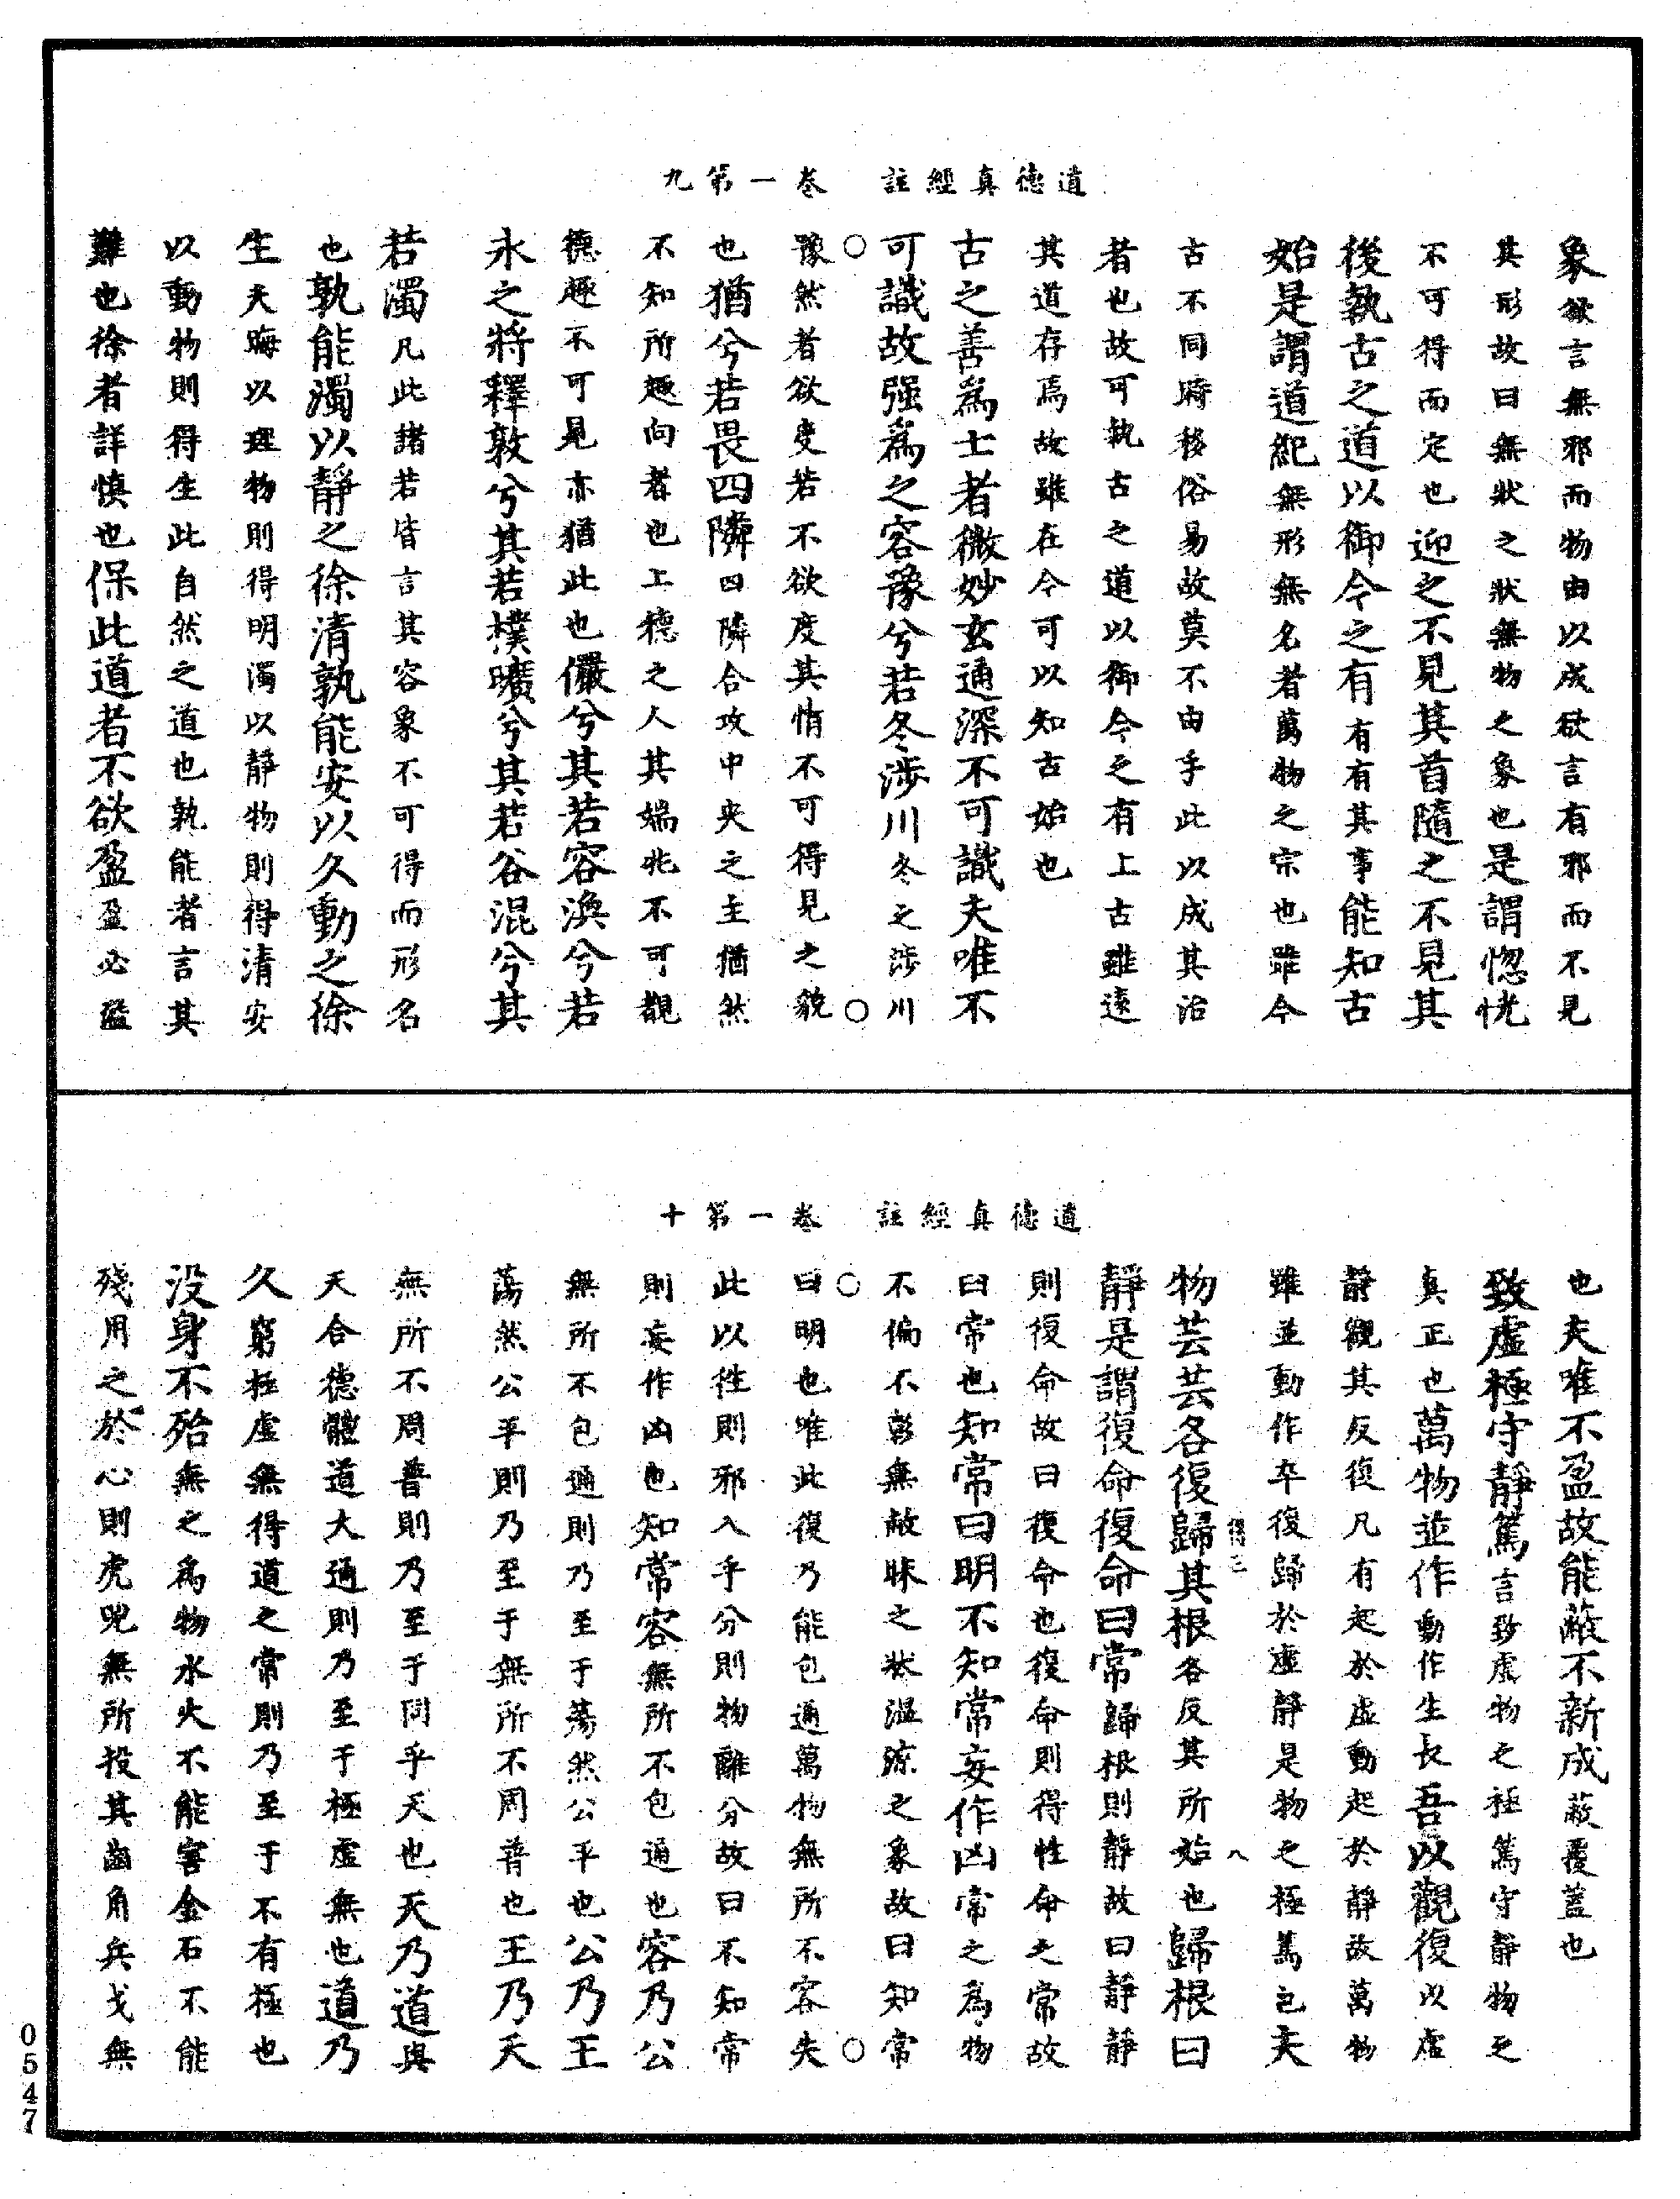 道德真經註　卷一第九
象欲言無邪而物由以成欲言有邪而不見
其形故曰無狀之狀無物之象也是謂惚恍
不可得而定也迎之不見其首隨之不見其
後執古之道以御今之有有有其事能知古
始是謂道紀無形無名者萬物之宗也雖今
古不同時移俗易故莫不由乎此以成其治
者也故可執古之道以御今之有上古雖遠
其道存焉故雖在今可以知古始也
古之善為士者微妙玄通深不可識夫唯不
可識故强為之容豫兮若冬涉川冬之涉川
○豫然者欲度若不欲度其情不可得見之貌○
也猶兮若畏四隣四隣合攻中央之主猶然
不知所趣向者也上德之人其端兆不可覩
德趣不可見亦猶此也儼兮其若容渙兮若
氷之將釋敦兮其若樸曠兮其若谷混兮其
若濁凡此諸若皆言其容象不可得而形名
也孰能濁以靜之徐清孰能安以久動之徐
生夫晦以理物則得明濁以靜物則得清安
以動物則得生此自然之道也孰能者言其
難也徐者詳慎也保此道者不欲盈盈必溢
道德真經註　卷一第十
也夫唯不盈故能蔽不新成蔽覆蓋也
致虛極守靜篤言致虛物之極篤守靜物之
真正也萬物並作動作生長吾以觀復以虛
靜觀其反復凡有起於虛動起於靜故萬物
雖並動作卒復歸於虛靜是物之極篤也夫
八
物芸芸各復歸其根各反其所始也歸根曰
靜是謂復命復命曰常歸根則靜故曰靜靜
則復命故曰復命也復命則得性命之常故
曰常也知常曰明不知常妄作凶常之為物
不偏不彰無敝昧之狀溫涼之象故曰知常
○曰明也唯此復乃能包通萬物無所不容失○
此以往則邪入乎分則物離分故曰不知常
則妄作凶也知常容無所不包通也容乃公
無所不包通則乃至于蕩然公平也公乃王
蕩然公平則乃至于無所不周普也王乃天
無所不周普則乃至于同乎天也天乃道與
天合德體道大通則乃至于極虛無也道乃
久窮極虛無得道之常則乃至于不有極也
没身不殆無之為物水火不能害金石不能
殘用之於心則虎兕無所投其齒角兵戈無
0547